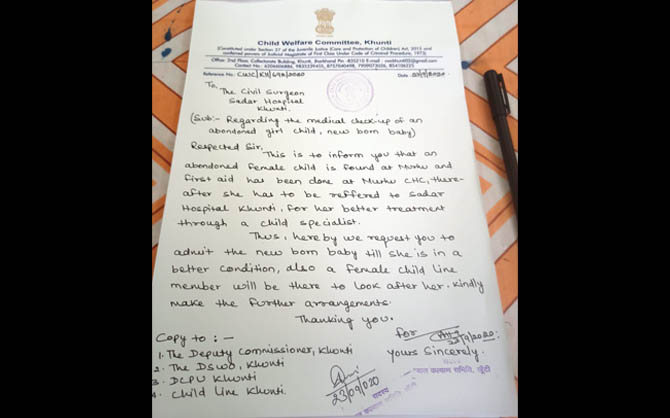 Child Welfare Committee, Khunti
(Constituted under Section 27 of the Juvenile Justice (Care and Protection of Children) Act, 2015 and
conferred powers of Judicial Magistrate of First Class Under Code of Criminal Procedure, 1973)
Office: 2nd Floor, Collectorate Building, Khunti, Jharkhand Pin : 835210 E-mail :
Contact No :
Reference No : CWC/KH/698/2020 Date
To,
The Civil Surgeon
Sadar Hospital
Khunti.
(Sub:- Regarding the medical check-up of an
abandoned girl child, new born baby)
Respected Sir,
This is to inform you that an
abandoned female child is found at Murhu and
first aid has been done at Murhu CHC, there-
after she has to be reffered to Sadar
Hospital Khunti, for her better treatment
through a child specialist.
Thus, hereby we request you to
admit the new born baby till she is in a
better condition, also a female Child line
member will be there to look after her. Kindly
make the further arrangements.
Thanking you.
Copy to : -
for
1. The Deputy Commissioner, Khunti
yours Sincerely.
2. The DSWO, Khunti
3. DCPU Khunti
4. Child Line Khunti.
23/09/2020
सदस्य
बाल कल्याण समिति, खूँटी